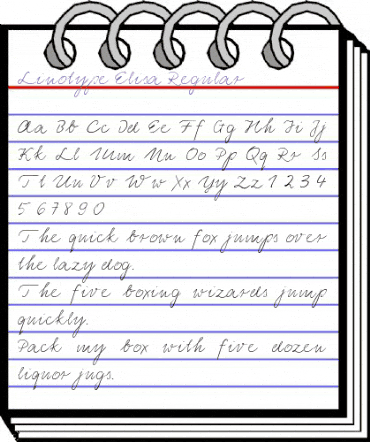 Linotype Elisa Regular
Aa Bb Cc Dd Ee Ff Gg Hh Ii Jj
Kk Ll Mm Nn Oo Pp Qq Rr Ss
Tt Uu Vv Ww Xx Yy Zz 1 2 3 4
5 6 7 8 9 0
The quick brown fox jumps over
the lazy dog.
The five boxing wizards jump
quickly.
Pack my box with five dozen
liquor jugs.